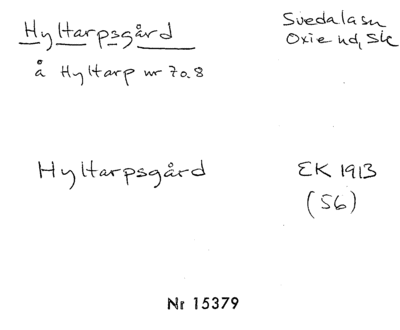 Hyltarpsgård
Svedala sn
Oxie hd, Sk
å Hyltarp nr 7 o. 8
Hyltarpsgård
EK 1913
(56)
Nr 15379